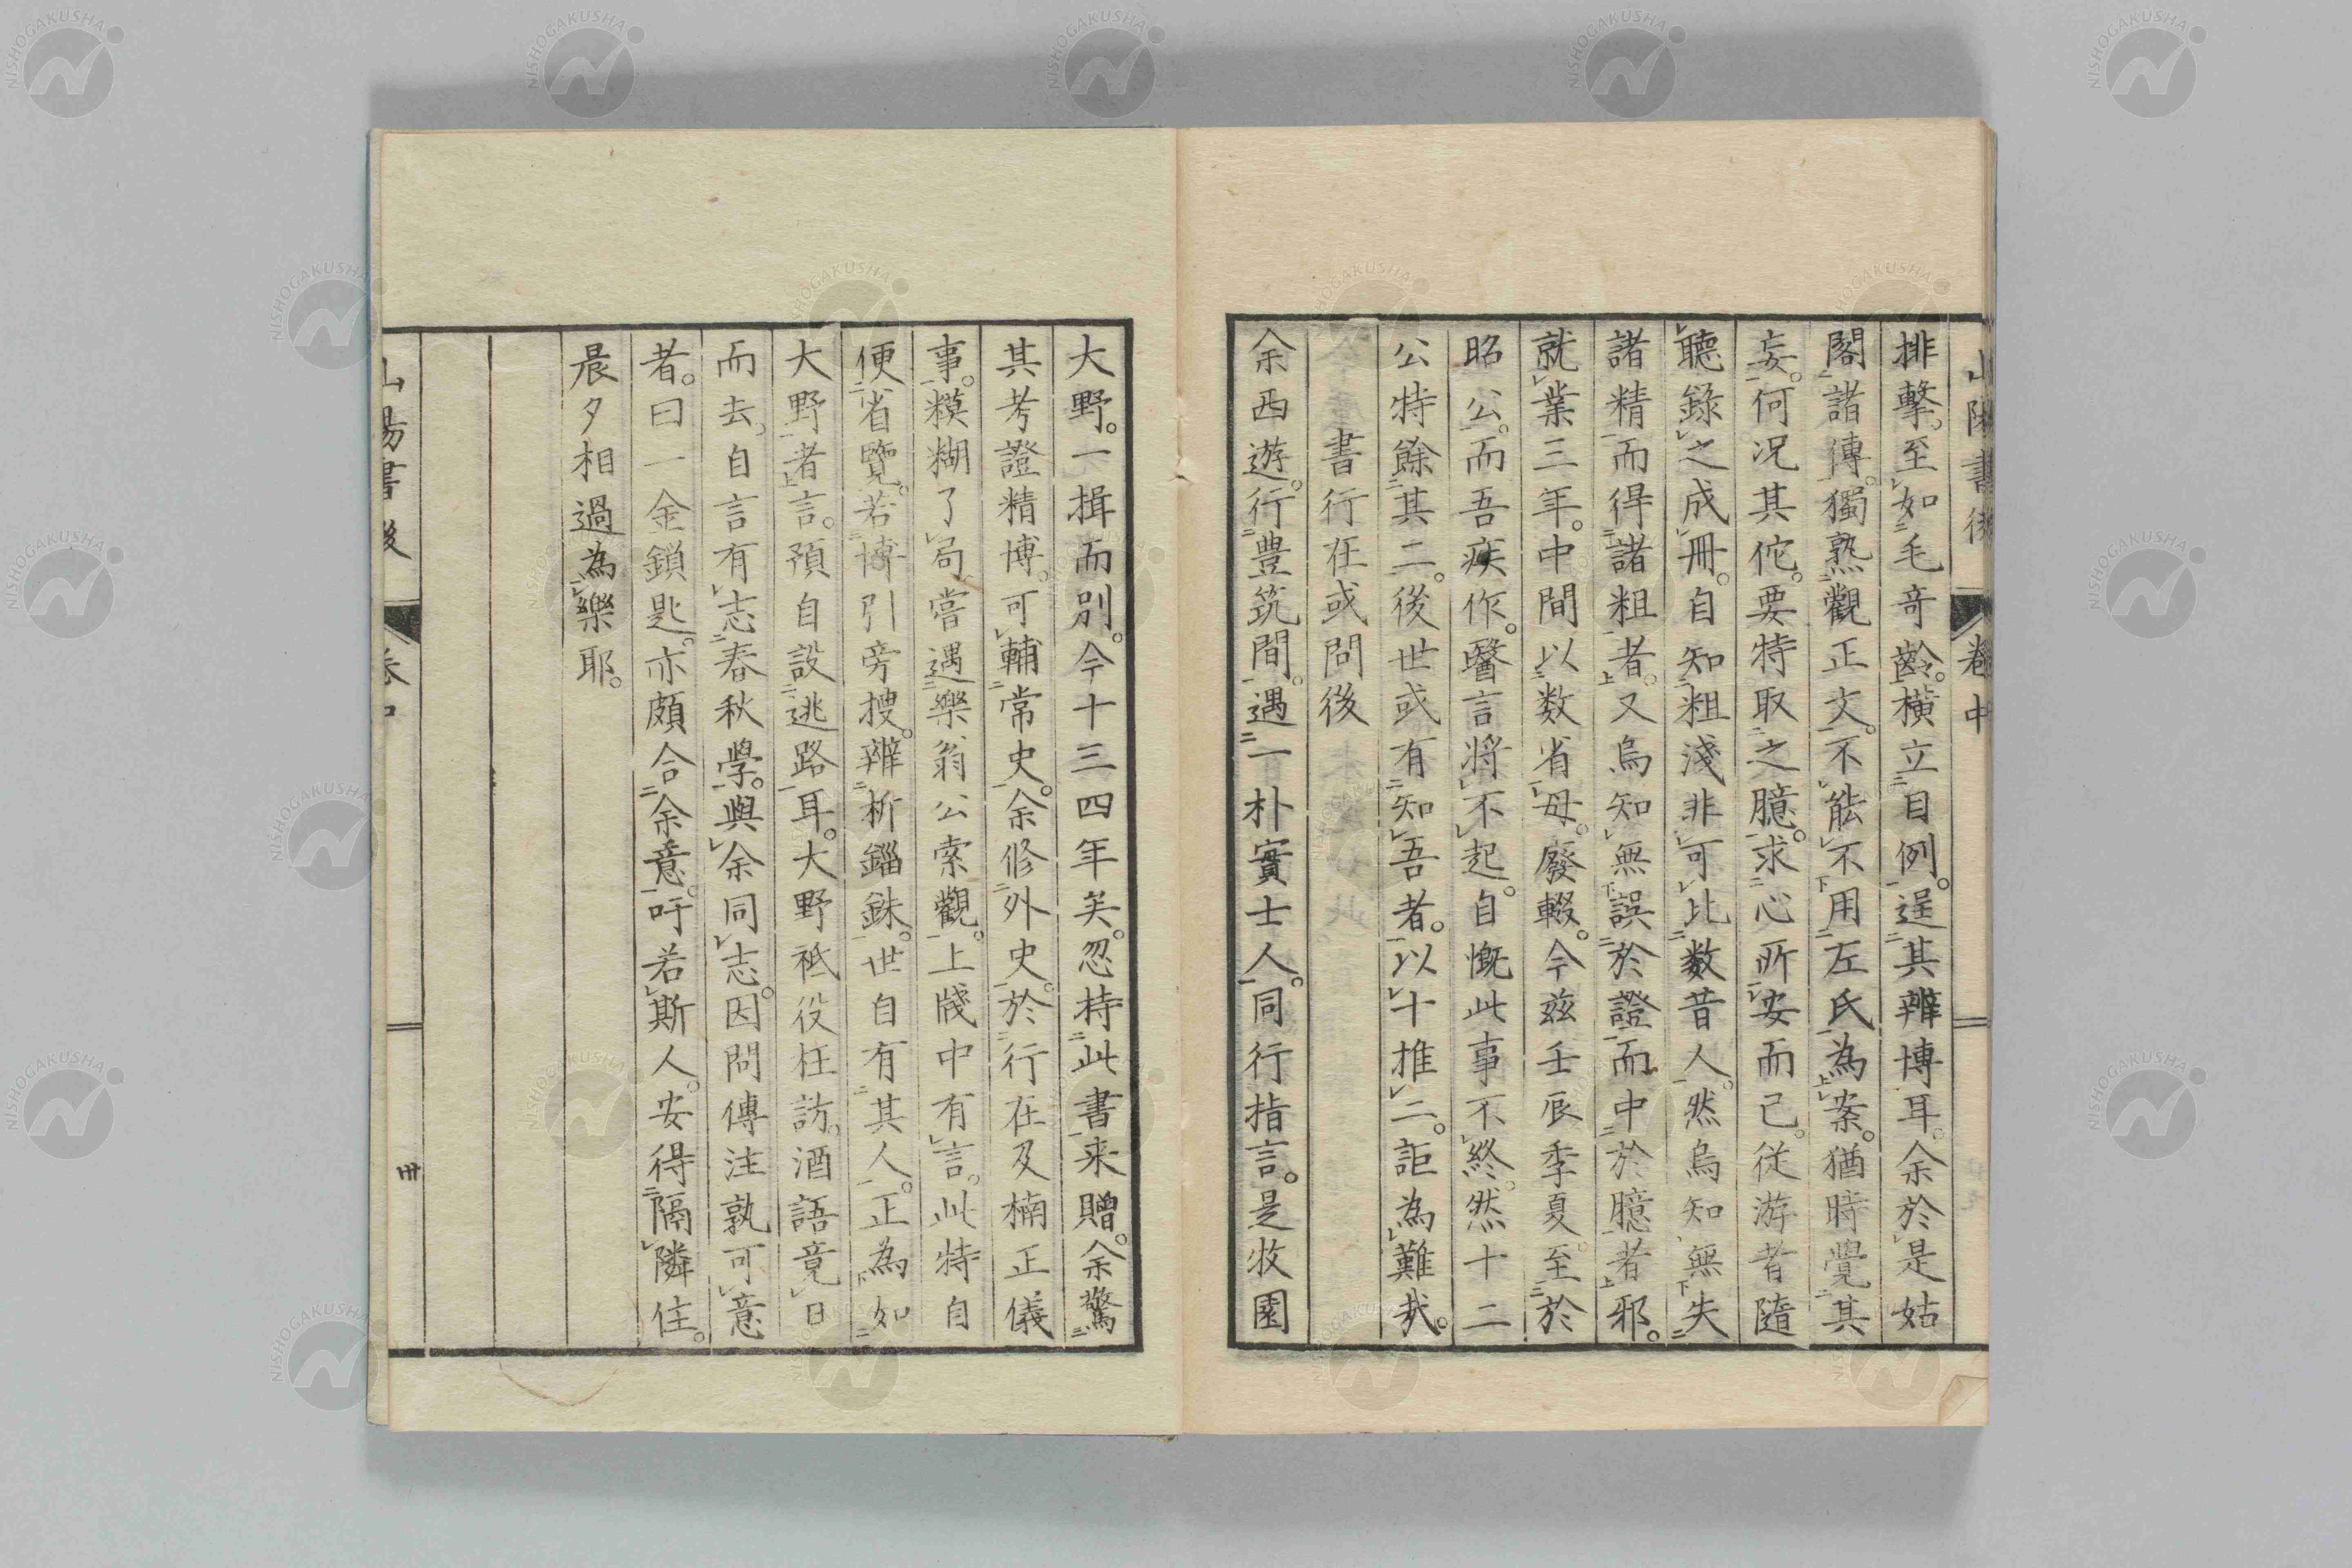 排擊。至如毛奇齡。橫立目例。逞其辨博耳。余於是姑
閣諸傳。獨熟觀正文。不能不用左氏為案。猶時覺其
妄。何况其佗。要特取之臆。求心所安而已。従游者隨
聽錄之成冊。自知粗淺非可比数昔人。然烏知無失
諸精而得諸粗者。又烏知無誤於證而中於臆者邪。
就業三年。中間以数省母。廢輟。今兹壬辰季夏。至於
昭公。而吾疾作。醫言將不起。自慨此事不終。然十二
公特餘其二。後世或有知吾者。以十推二。詎為難哉。
書行在或問後
余西遊。行豊筑間。遇一朴實士人。同行指言。是牧園
大野。一揖而別。今十三四年矣。忽持此書来贈。余驚
其考證精博。可輔常史。余修外史。於行在及楠正儀
事。糢糊了局。嘗遇樂翁公索觀。上牋中有言。此特自
便省覽。若博引旁搜。辨析錙銖。世自有其人。正為如
大野者言。預自設逃路耳。大野祗役枉訪。酒語竟日
而去。自言有志春秋學。與余同志。因問傳注孰可意
者。曰一金鎖匙。亦頗合余意。吁若斯人。安得隔隣住。
晨夕相過為樂耶。
山陽書後
卷中
卅
NISHOGAKUSHA